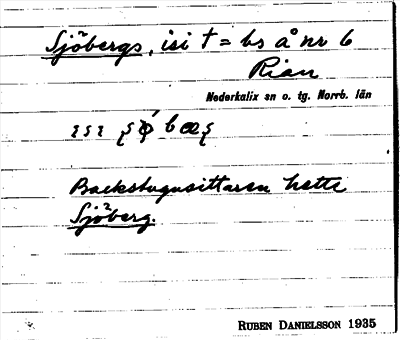 Sjöbergs, isi t = bs å nr 6
Rian
Nederkalix sn o. tg. Norrb. län
Backstugusittaren hette
Sjöberg.
RUBEN DANIELSSON 1935